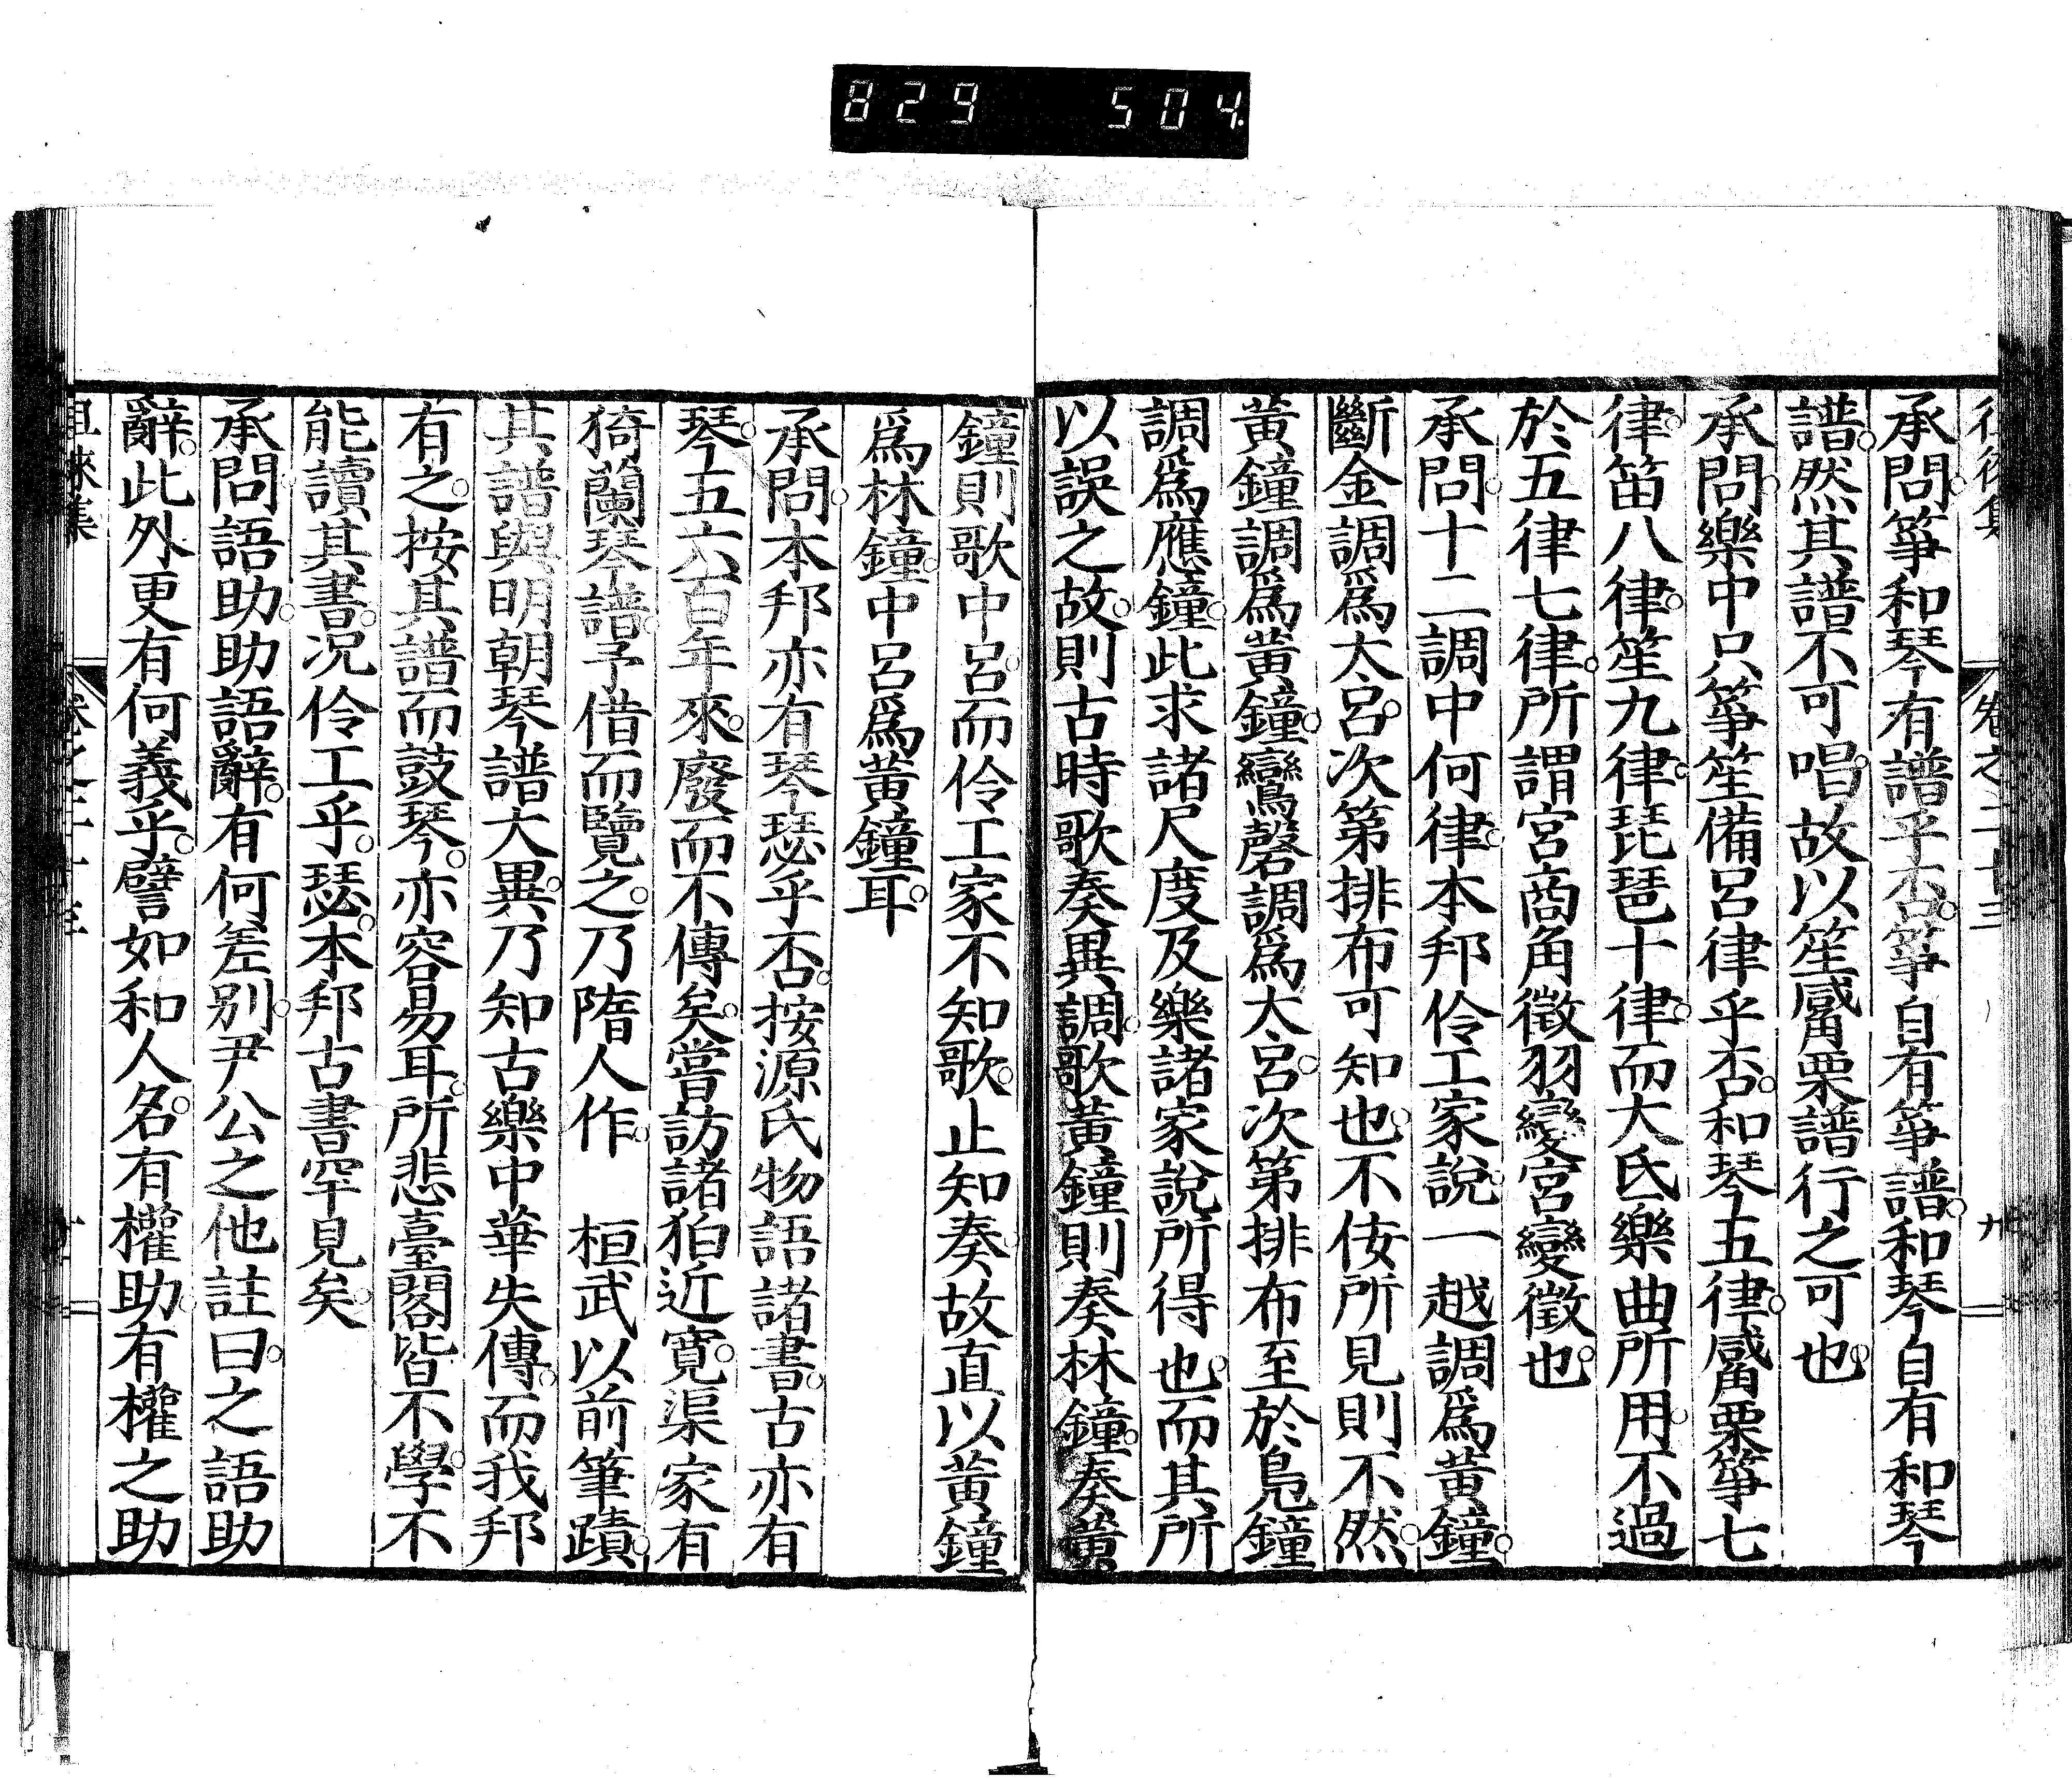 829 504
卷之二十三 九
承問箏和琴有譜乎否箏自有箏譜和琴自有和琴
譜然其譜不可唱故以笙觱栗譜行之可也
承問樂中只箏笙備呂律乎否和琴五律觱栗箏七
律笛八律笙九律琵琶十律而大氐樂曲所用不過
於五律七律所謂宮商角徵羽變宮變徵也
承問十二調中何律本邦伶工家說一越調爲黃鐘
斷金調爲太呂次第排布可知也不佞所見則不然
黃鐘調爲黃鐘鸞磬調爲大呂次第排布至於鳧鐘
調爲應鐘此求諸尺度及樂諸家說所得也而其所
以誤之故則古時歌奏異調歌黃鐘則奏林鐘奏黃
鐘則歌中呂而伶工家不知歌止知奏故直以黃鐘
爲林鐘中呂爲黃鐘耳
承問本邦亦有琴瑟乎否按源氏物語諸書古亦有
琴五六百年來廢而不傳矣嘗訪諸狛近寬渠家有
猗蘭琴譜予借而覽之乃隋人作 桓武以前筆蹟
其譜與明朝琴譜大異乃知古樂中華失傳而我邦
有之按其譜而鼓琴亦容易耳所悲臺閣皆不學不
能讀其書況伶工乎瑟本邦古書罕見矣
承問語助助語辭有何差別尹公之他註曰之語助
辭此外更有何義乎譬如和人名有權助有權之助